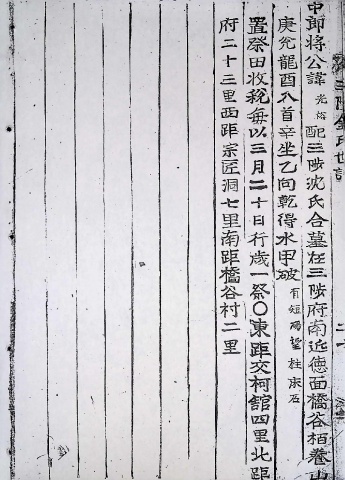 中郎將公諱光裕配三陟沈氏合墓在三陟府南近德面橋谷栢養山
庚兌龍酉入首辛坐乙向乾得水甲破有短碣望柱床石
置祭田收稅每以三月二十日行歲一祭〇東距交柯館四里北距
府二十三里西距宗匠洞七里南距橋谷村二里